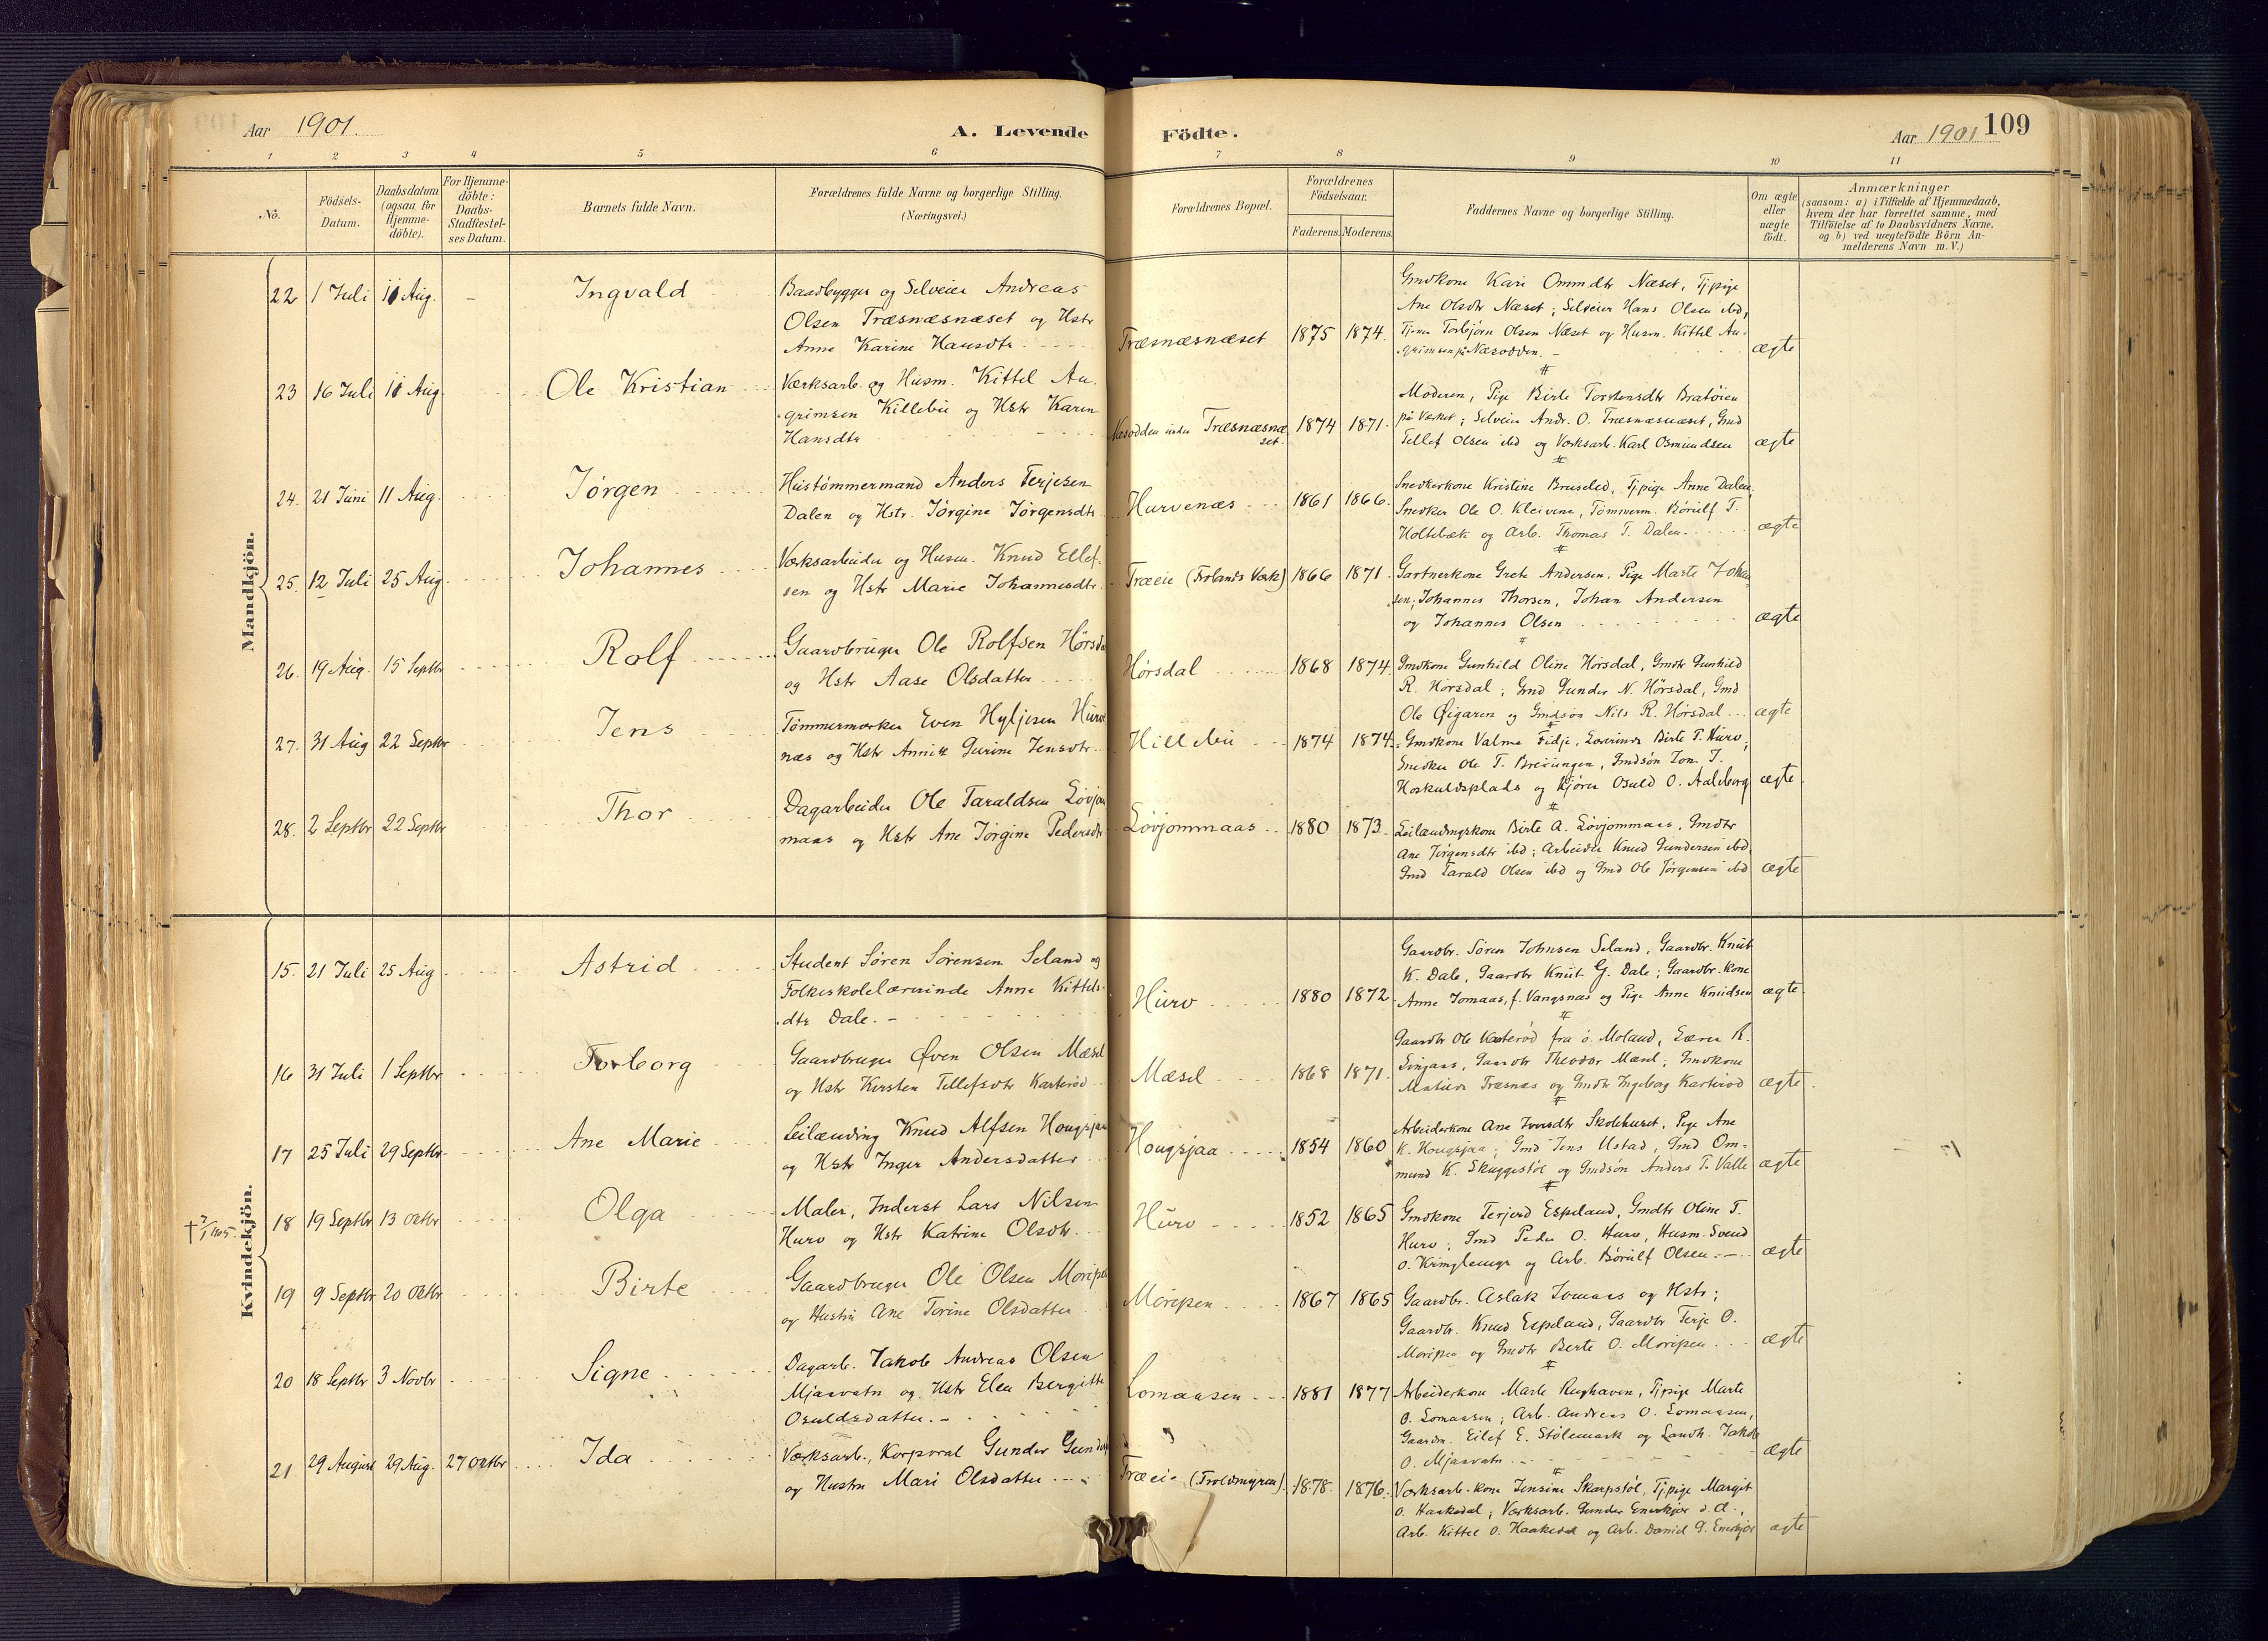 Aar 1901.
A. Levende
Födte.
Aar 1901
109
1 2 3 4 5 6 7 8 9 10 11
No.
Födsels-
Datum.
Daabsdatum
(ogsaa for
Hjemme-
döbte).
For Hjemme-
döbte:
Daabs-
Stadfæstel-
ses Datum.
Barnets fulde Navn.
Forældrenes fulde Navne og borgerlige Stilling.
(Næringsvei.)
Forældrenes Bopæl.
Forældrenes
Födselsaar.
Faderens. Moderens.
Faddernes Navne og borgerlige Stilling.
Om ægte
eller
uægte
födt.
Anmærkninger
(saasom: a) i Tilfælde af Hjemmedaab,
hvem der har forrettet samme, med
Tilföielse af to Daabsvidners Navne.
og b) ved uægtefödte Börn An-
melderens Navn m. V.)
Mandkjön.
22 1 Juli 11 Aug. Ingvald
Baadbygger og Selveier Andreas
Olsen Træsnæsnæset og Hstr
Anne Karine Hansdtr.
Træsnæsnæset 1875 1874.
Gmdkone Kari Ommdtr Næset, Tjpige
Ane Olsdtr Næset; Selveier Hans Olsen ibd,
Tjener Torbjørn Olsen Næset og Husm. Kittel An-
grimsen på Næsodden.
ægte
23 16 Juli 11 Aug. Ole Kristian
Værksarb. og Husm. Kittel An-
grimsen Killebu og Hstr Karen
Hansdtr
Næsodden under Træsnæsnæ
set. 1874 1871.
Moderen, Pige Birte Torstensdtr Bratøien
på Værket; Selveier Andr. O. Træsnæsnæset, Gmd
Tellef Olsen ibd og Værksarb. Karl Osmundsen
ægte
24. 21 Juni 11 Aug. Jørgen
Hustømmermand Anders Terjesen
Dalen og Hstr. Jørgine Jørgensdtr
Hurvenæs 1861 1866.
Snedkerkone Kristine Bruseled, Tjpige Anne Dalen,
Snedker Ole O. Kleivene, Tømmerm. Børulf T.
Holtebæk og Arb. Thomas T. Dalen.
ægte
25. 12 Juli 25 Aug. Johannes
Værksarbeider og Husm. Knud Ellef-
sen og Hstr Marie Johannesdtr
Træeie (Frolands Værk) 1866 1871.
Gartnerkone Grete Andersen, Pige Marte Johan-
sen; Johannes Thorsen, Johan Andersen
og Johannes Olsen
ægte
26. 19 Aug. 15 Septbr Rolf
Gaardbruger Ole Rolfsen Hørsda
og Hstr Aase Olsdatter
Hørsdal 1868 1874.
Gmdkone Gunhild Oline Hørsdal, Gmdtr Gunhild
R. Hørsdal; Gmd Gunder N. Hørsdal, Gmd
Ole Øigaren og Gmdsøn Nils R. Hørsdal
ægte
27. 31 Aug 22 Septbr Jens
Tømmermærker Even Hyljesen Hurv
næs og Hstr Annike Gurine Jensdtr.
Hillebu 1874 1874.
Gmdkone Valme Fidje, Lærerinde Birte T. Hurv;
Snedker Ole T. Breiungen, Gmdsøn Jon J.
Hoskuldsplads og Kjører Osuld O. Aaleborg
ægte.
28. 2 Septbr 22 Septbr Thor
Dagarbeider Ole Taraldsen Løvjom
maas og Hstr Ane Jørgine Pedersdtr
Løvjommaas 1880 1873.
Leilændingskone Birte A. Løvjommaas, Gmdtr
Ane Jørgensdtr ibd; Arbeider Knud Gundersen ibd,
Gmd Tarald Olsen ibd og Gmd Ole Jørgensen ibd
ægte
Kvindekjön.
15. 21 Juli 25 Aug Astrid
Student Søren Sørensen Seland og
Folkeskolelærerinde Anne Kittels-
dtr Dale.
Hurv 1880 1872.
Gaardbr. Søren Johnsen Seland, Gaardbr. Knut
K. Dale, Gaardbr Knut G. Dale; Gaardbr.kone
Anne Jomaas, f. Vangsnæs og Pige Anne Knudsen
ægte.
16 31 Juli 1 Septbr Torborg
Gaardbruger Øven Olsen Mæsel
og Hstr Kirsten Tellefsdtr Kasterød
Mæsel 1868 1871.
Gaardbr Ole Kasterød fra ø. Moland, Lærer R.
Gaardbr Theodor Mæsel; Gmdkone
Matilde Træsnæs og Gmdtr Ingeborg Kasterød
ægte.
17 25 Juli 29 Septbr. Ane Marie
Leilænding Knud Alfsen Hougsjaa
og Hstr Inger Andersdatter
Hougsjaa 1854 1860
Arbeiderkone Ane Iversdtr Skolehuset, Pige Ane
K. Hougsjaa; Gmd Jens Ustad, Gmd Om-
mund K. Skuggestøl og Gmdsøn Anders T. Valle
ægte
† 7/1 1905.
18 19 Septbr 13 Oktbr Olga
Maler, Inderst Lars Nilsen
Hurv og Hstr Katrine Olsdtr
Hurv 1852 1865
Gmdkone Terjerd Espeland, Gmdtr Oline T.
Hurv; Gmd Peder O. Hurv, Husm. Svend
O. Kringlemyr og Arb. Børulf Olsen.
ægte
19 9 Septbr 20 Oktbr Birte
Gaardbruger Ole Olsen Moripen
og Hustru Ane Torine Olsdatter
Moripen 1867 1865
Gaardbr. Aslak Jomaas og Hstr;
Gaardbr. Knud Espeland, Gaardbr Terje O.
Moripen og Gmdtr Berte O. Moripen.
ægte
20 18 Septbr 3 Novbr Signe
Dagarb. Jakob Andreas Olsen
Mjaavatn og Hstr Elen Bergitte
Osuldsdatter.
Lomaasen 1881 1877
Arbeiderkone Marte Rughaven, Tjpige Marte
O. Lomaasen; Arb. Andreas O. Lomaasen,
Gaardm. Eilef E. Stølemark og Landh. Jakob
O. Mjaavatn.
ægte
21. 29 August 29 Aug. 27 Oktbr Ida
Værksarb., Korporal Gunder Gunders
og Hustru Mari Olsdatter
Træeie (Troldmyren). 1878. 1876.
Værksarb.kone Jensine Skarpstøl, Tjpige Margit
O. Haakedal; Værksarb. Gunder Enerkjær d.æ.,
Arb. Kittel O. Haakedal og Arb. Daniel G. Enerkjær
ægte